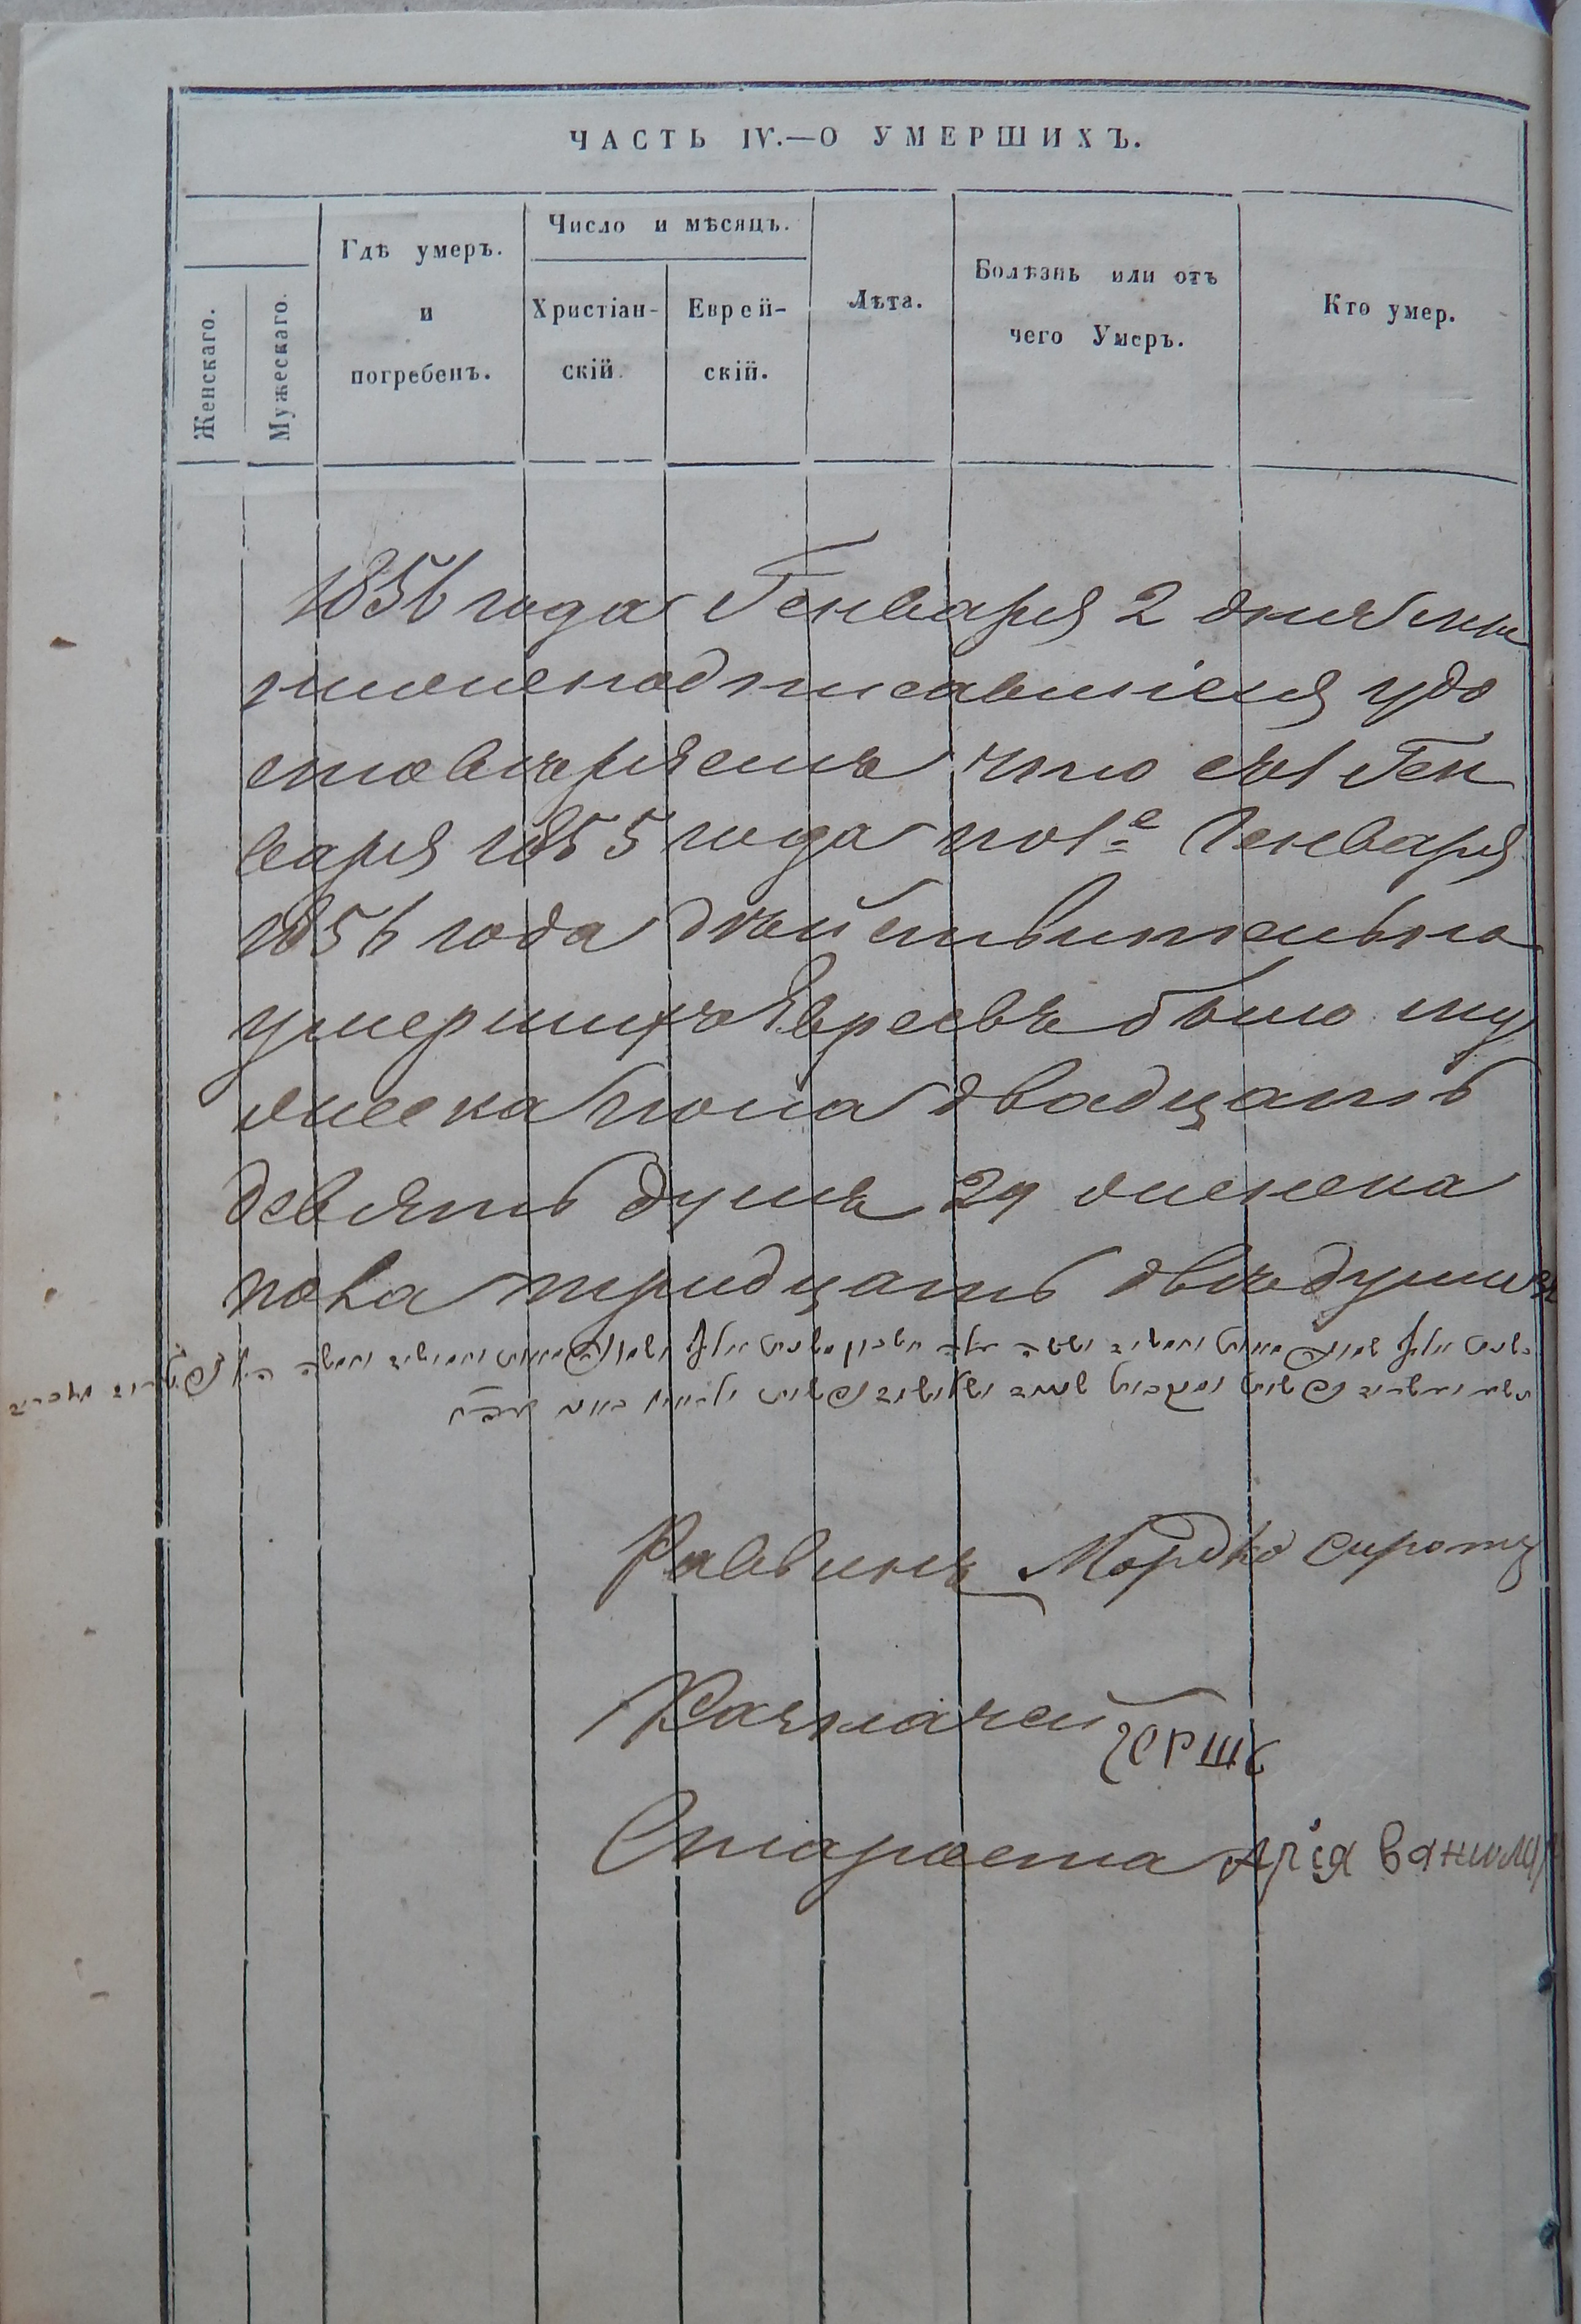 ЧАСТЬ IV.—О УМЕРШИХЪ.
Женскаго.
Мужескаго.
Гдѣ умеръ.
и
погребенъ.
Число и мѣсяцъ.
Христіан-
скій.
Еврей-
скій.
Лѣта.
Болѣзнь или отъ
чего Умеръ.
Кто умер.
1856 года Генваря 2 дня мы
нижеподписавшіеся удо
стовѣряемъ что съ 1 Ген
варя 1855 года по 1е Генваря
1856 года дѣйствительно
умершихъ Евреевъ было му
жеска пола двадцать
девять душъ 29 женска
пола тридцать двѣ души
Раввинъ Мордко Сирота
Казначей
герш
Староста Арія